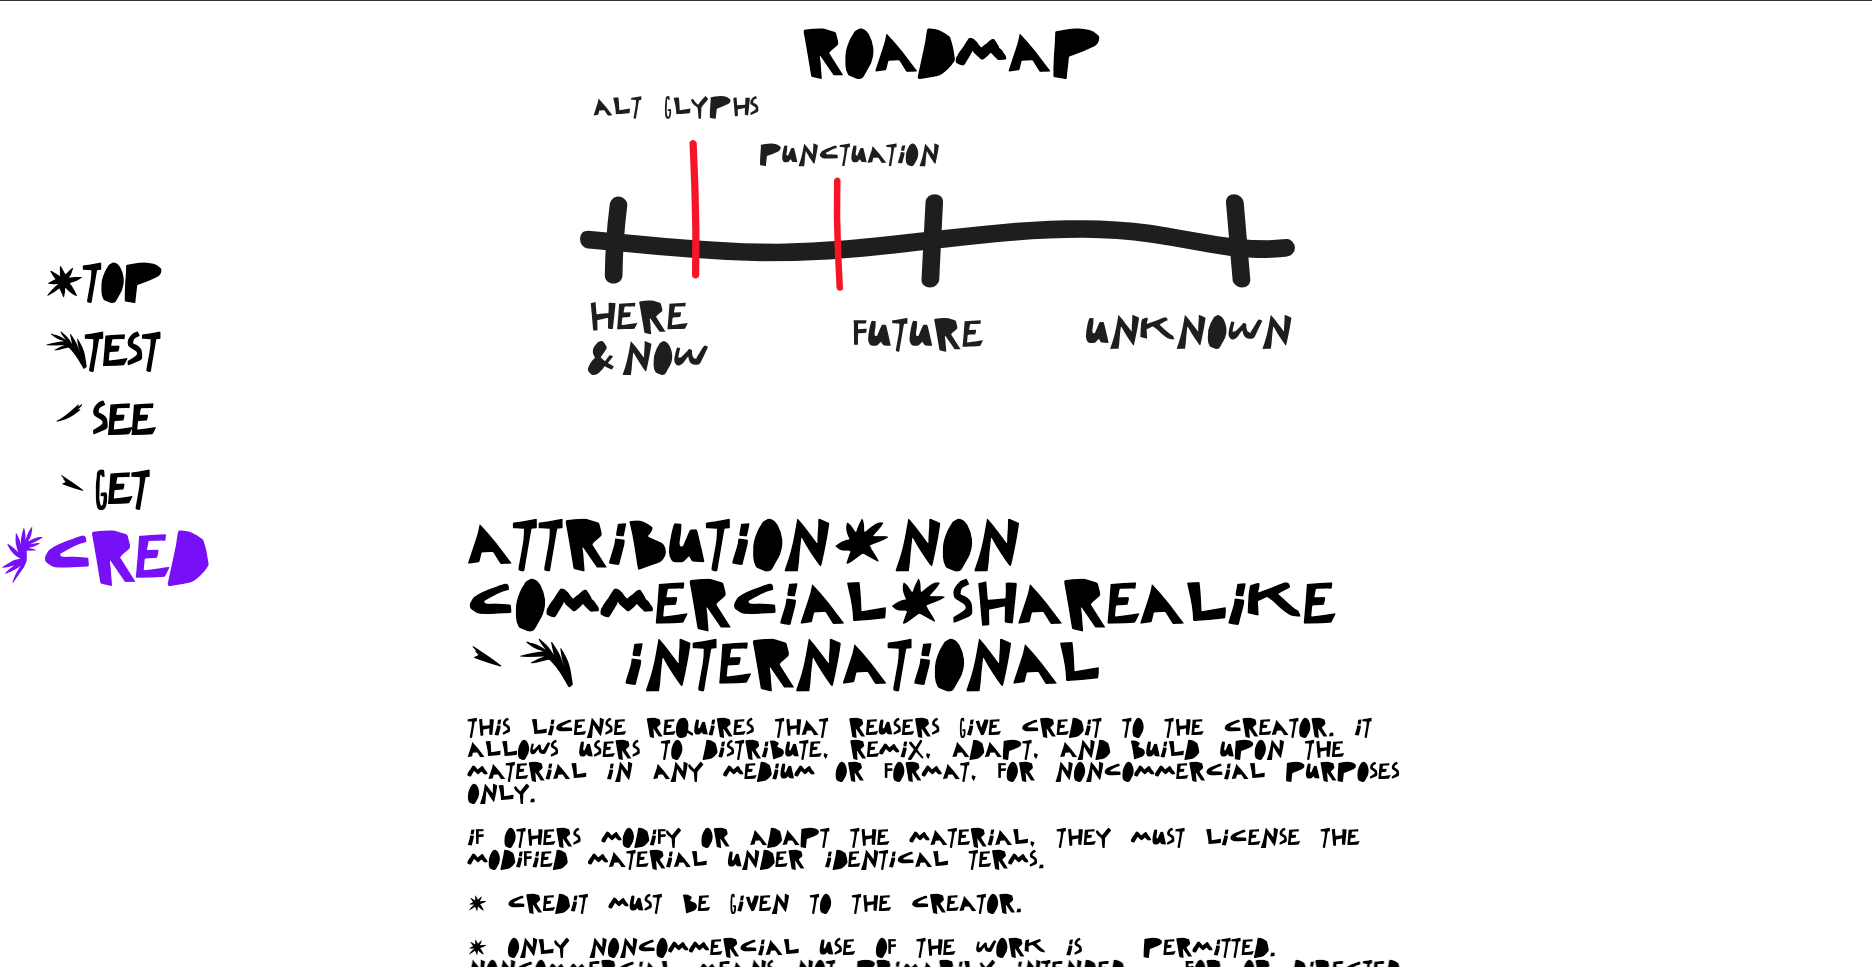 ROADMAP
ALT GLYPHS
PUNCTUATION
HERE
& NOW
FUTURE
UNKNOWN
*TOP
TEST
SEE
GET
*CRED
ATTRIBUTION*NON
COMMERCIAL*SHAREALIKE
INTERNATIONAL
THIS LICENSE REQUIRES THAT REUSERS GIVE CREDIT TO THE CREATOR. IT
ALLOWS USERS TO DISTRIBUTE, REMIX, ADAPT, AND BUILD UPON THE
MATERIAL IN ANY MEDIUM OR FORMAT, FOR NONCOMMERCIAL PURPOSES
ONLY.
IF OTHERS MODIFY OR ADAPT THE MATERIAL, THEY MUST LICENSE THE
MODIFIED MATERIAL UNDER IDENTICAL TERMS.
* CREDIT MUST BE GIVEN TO THE CREATOR.
* ONLY NONCOMMERCIAL USE OF THE WORK IS PERMITTED.
NONCOMMERCIAL MEANS NOT PRIMARILY INTENDED FOR OR DIRECTED